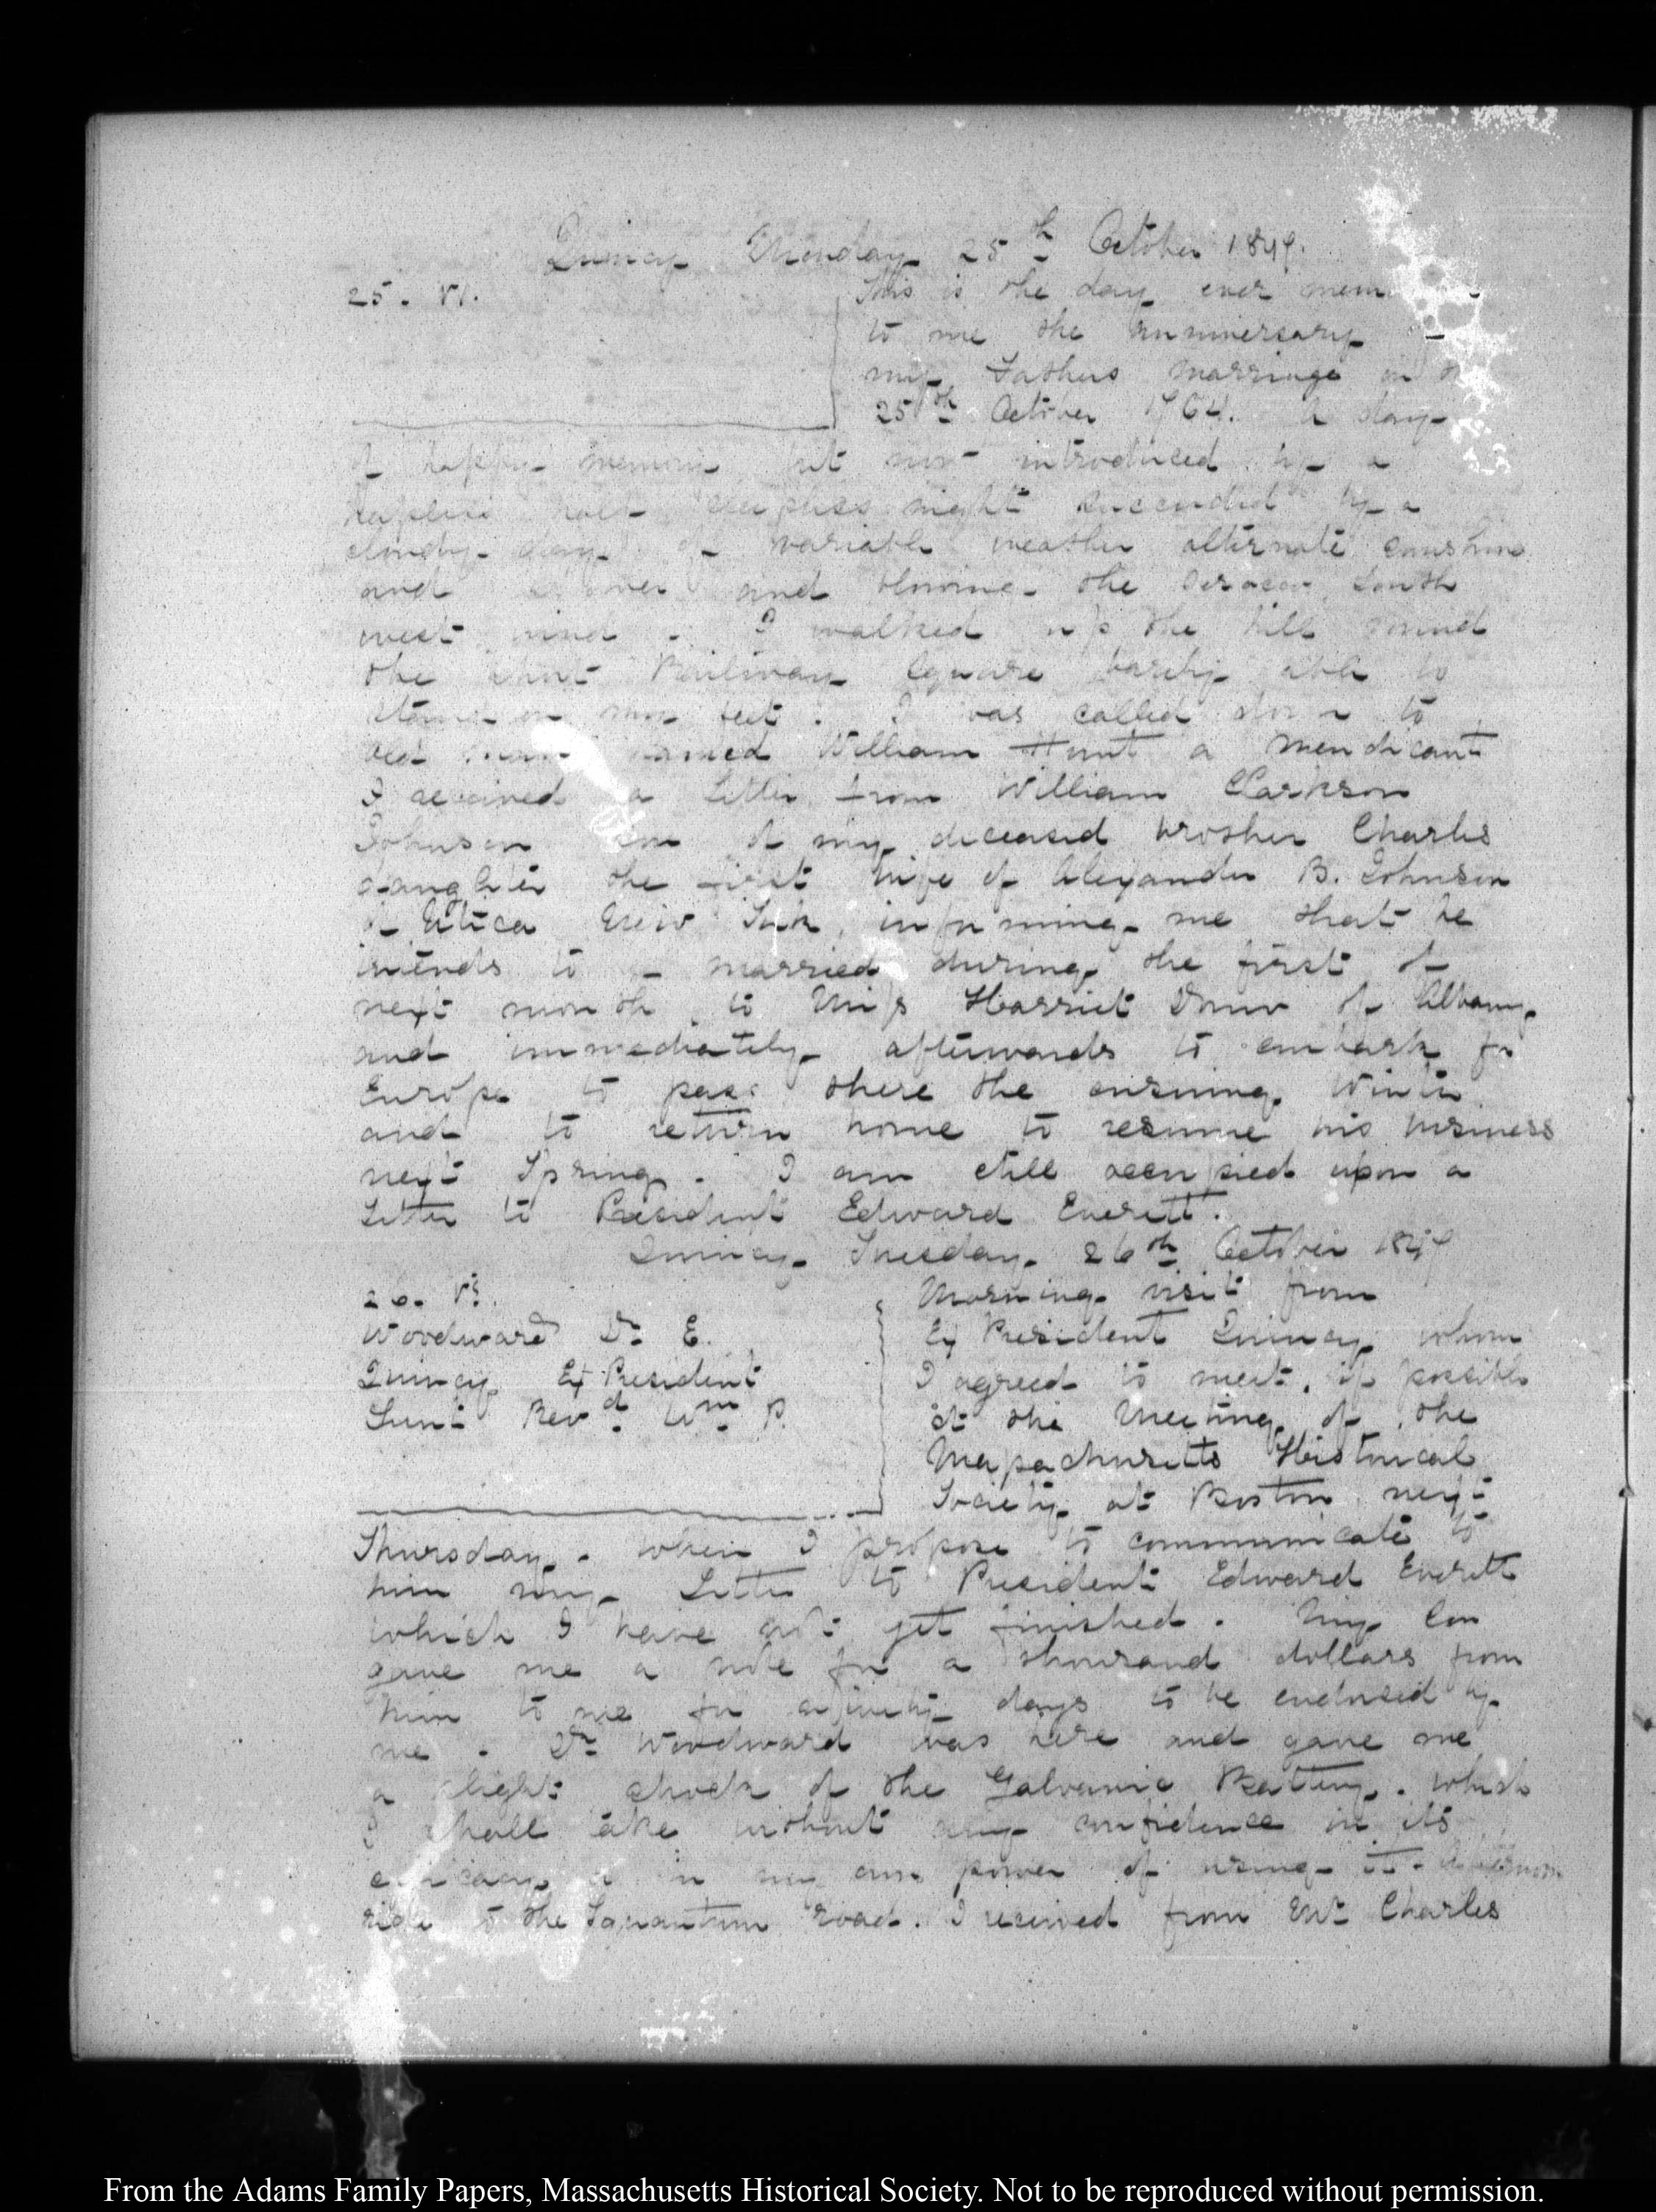 Quincy Monday 25th October 1847.
25. VI.
This is the day ever mem
to me the anniversary
my Fathers marriage on
25th October 1764. A day
of happy memory but now introduced by a
half sleepless night succeeded by a
cloudy day of variable weather alternate sunshine
and and blowing the South
west wind. I walked up the hill round
the Railway Square barely able to
stand on my feet. I was called down to
old man named William Hunt a mendicant
I received a Letter from William Clarkson
Johnson son of my deceased brother Charles
daughter the first wife of Alexander B. Johnson
of Utica New York, informing me that he
intends to married during the first of
next month to Miss Harriet of Albany
and immediately afterwards to embark for
Europe to pass there the ensuing Winter
and to return home to resume his business
next Spring. I am still occupied upon a
Letter to President Edward Everett.
Quincy Tuesday 26th October 1847
26. V:
Woodward Dr E.
Quincy Ex President
Lunt Revd Wm P.
Morning visit from
Ex President Quincy whom
I agreed to meet, if possible
at the Meeting of the
Massachusetts Historical
Society at Boston next
Thursday. when I propose to communicate to
him my Letter to President Edward Everett
which I have not yet finished. My Son
gave me a note for a thousand dollars from
him to me for days to be endorsed by
me. Dr Woodward was here and gave me
a slight shock of the Galvanic Battery. which
I shall take without any confidence in its
efficacy or in my own power of using it. Afternoon
ride to the Squantum road. I received from Mr Charles
From the Adams Family Papers, Massachusetts Historical Society. Not to be reproduced without permission.